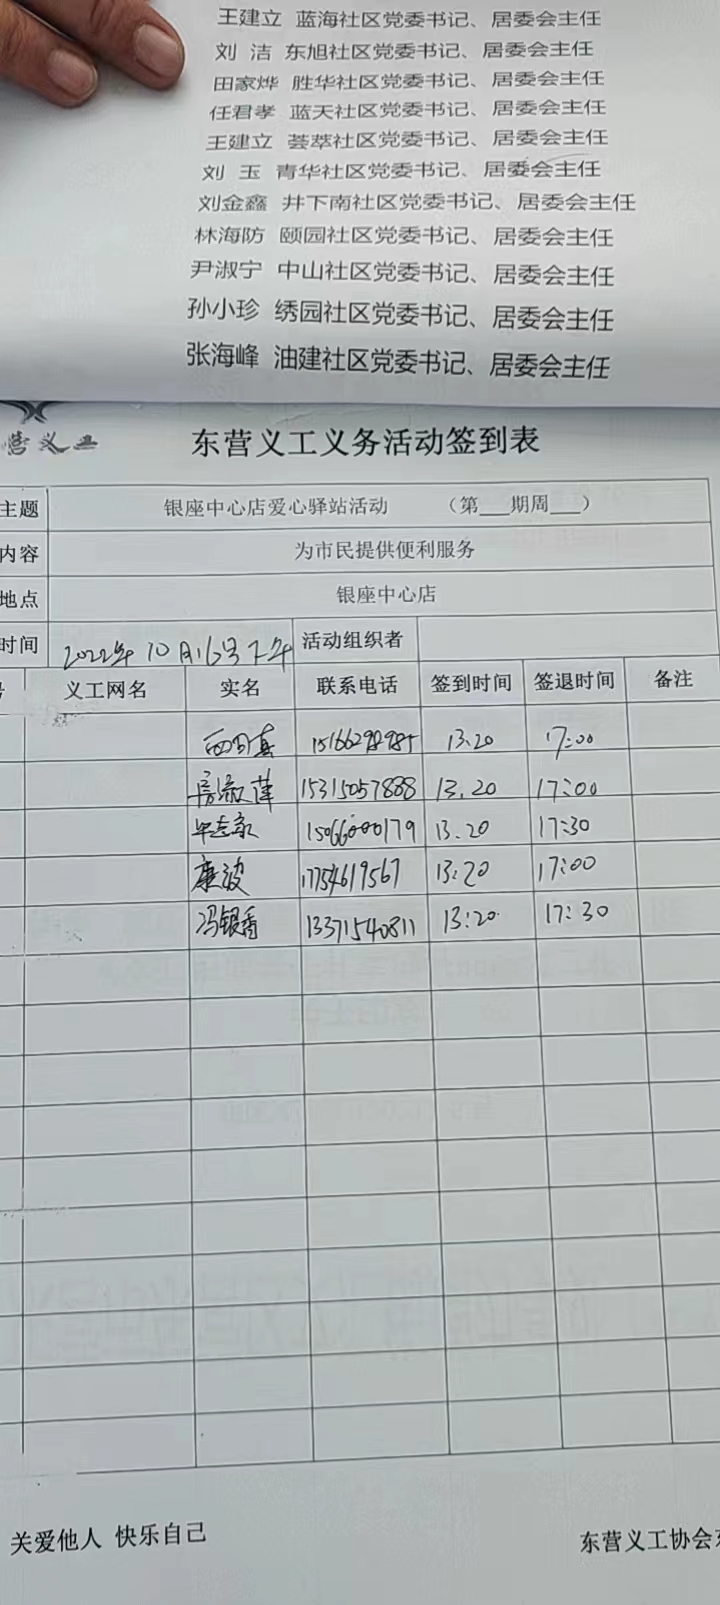 王建立 蓝海社区党委书记、居委会主任
刘 洁 东旭社区党委书记、居委会主任
田家烨 胜华社区党委书记、居委会主任
任君孝 蓝天社区党委书记、居委会主任
王建立 荟萃社区党委书记、居委会主任
刘 玉 青华社区党委书记、居委会主任
刘金鑫 井下南社区党委书记、居委会主任
林海防 颐园社区党委书记、居委会主任
尹淑宁 中山社区党委书记、居委会主任
孙小珍 绣园社区党委书记、居委会主任
张海峰 油建社区党委书记、居委会主任
营义工 东营义工义务活动签到表
主题 银座中心店爱心驿站活动 (第___期周___)
内容 为市民提供便利服务
地点 银座中心店
时间 2022年10月16号下午 活动组织者
号 义工网名 实名 联系电话 签到时间 签退时间 备注
13.20 17:00
15315057888 13.20 17:00
15066000179 13.20 17:30
康波 17754619567 13:20 17:00
冯银香 13371540811 13:20 17:30
关爱他人 快乐自己 东营义工协会